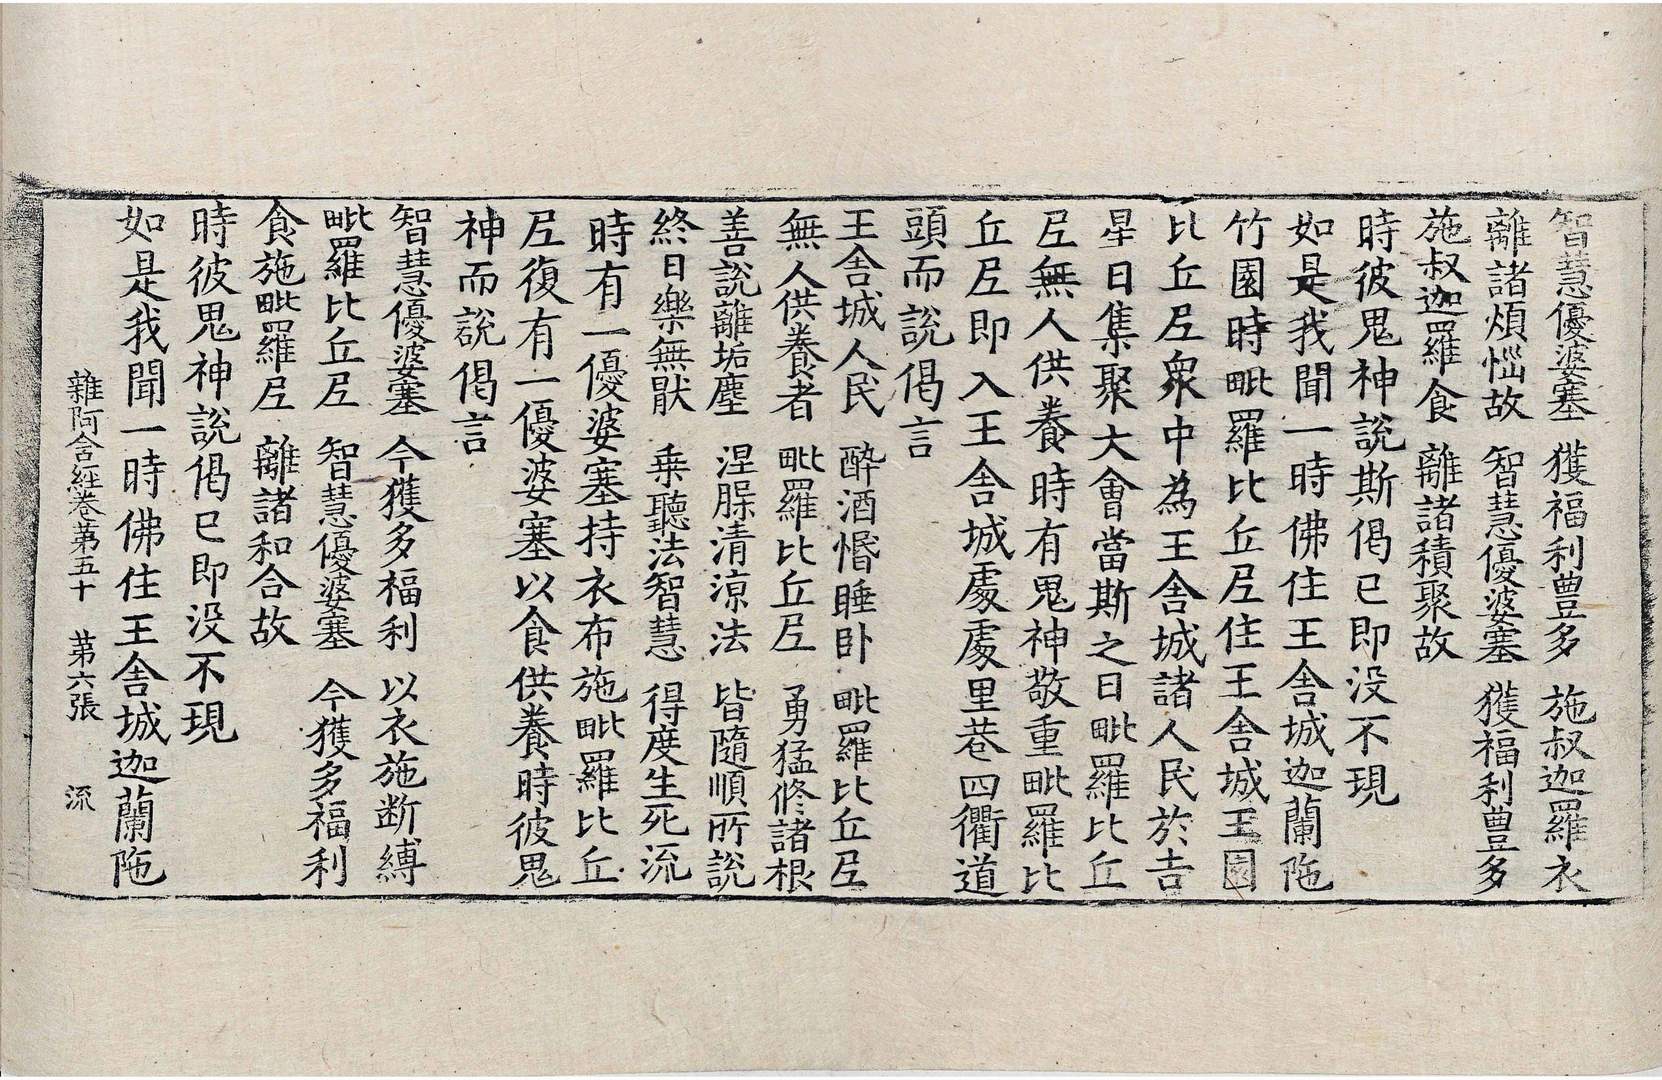 智慧優婆塞　獲福利豊多　施叔迦羅衣
離諸煩惱故　智慧優婆塞　獲福利豊多
施叔迦羅食　離諸積聚故
時彼鬼神說斯偈已即没不現
如是我聞一時佛住王舍城迦蘭陁
竹園時毗羅比丘尼住王舍城王園
比丘尼衆中為王舍城諸人民於吉
星日集聚大會當斯之日毗羅比丘
尼無人供養時有鬼神敬重毗羅比
丘尼即入王舍城處處里巷四衢道
頭而說偈言
王舍城人民　醉酒惛睡卧　毗羅比丘尼
無人供養者　毗羅比丘尼　勇猛修諸根
善說離垢塵　涅槃清涼法　皆隨順所說
終日樂無猒　乗聽法智慧　得度生死流
時有一優婆塞持衣布施毗羅比丘
尼復有一優婆塞以食供養時彼鬼
神而說偈言
智慧優婆塞　今獲多福利　以衣施断縛
毗羅比丘尼　智慧優婆塞　今獲多福利
食施毗羅尼　離諸和合故
時彼鬼神說偈已即没不現
如是我聞一時佛住王舍城迦蘭陁
雜阿含經卷第五十　第六張　流